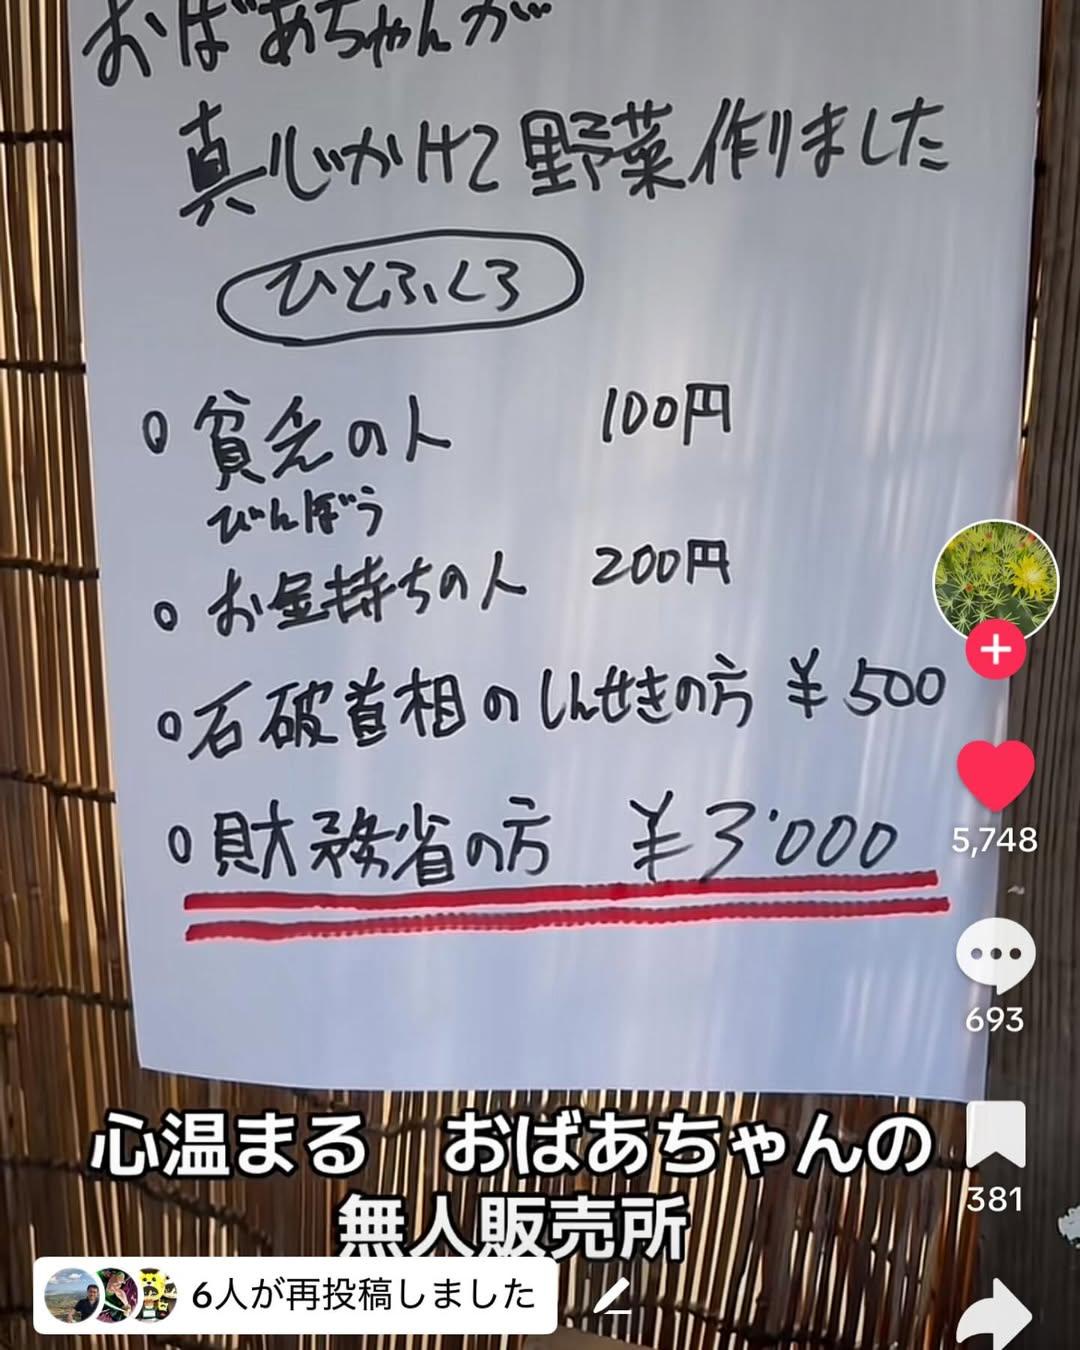 おばあちゃんが…
真心かけて野菜作りました
ひとふくろ
○ 貧乏の人 100円
びんぼう
○ お金持ちの人 200円
○ 石破首相のしんせきの方 ¥500
○ 財務省の方 ¥3'000
5,748
693
心温まる おばあちゃんの
無人販売所
381
6人が再投稿しました